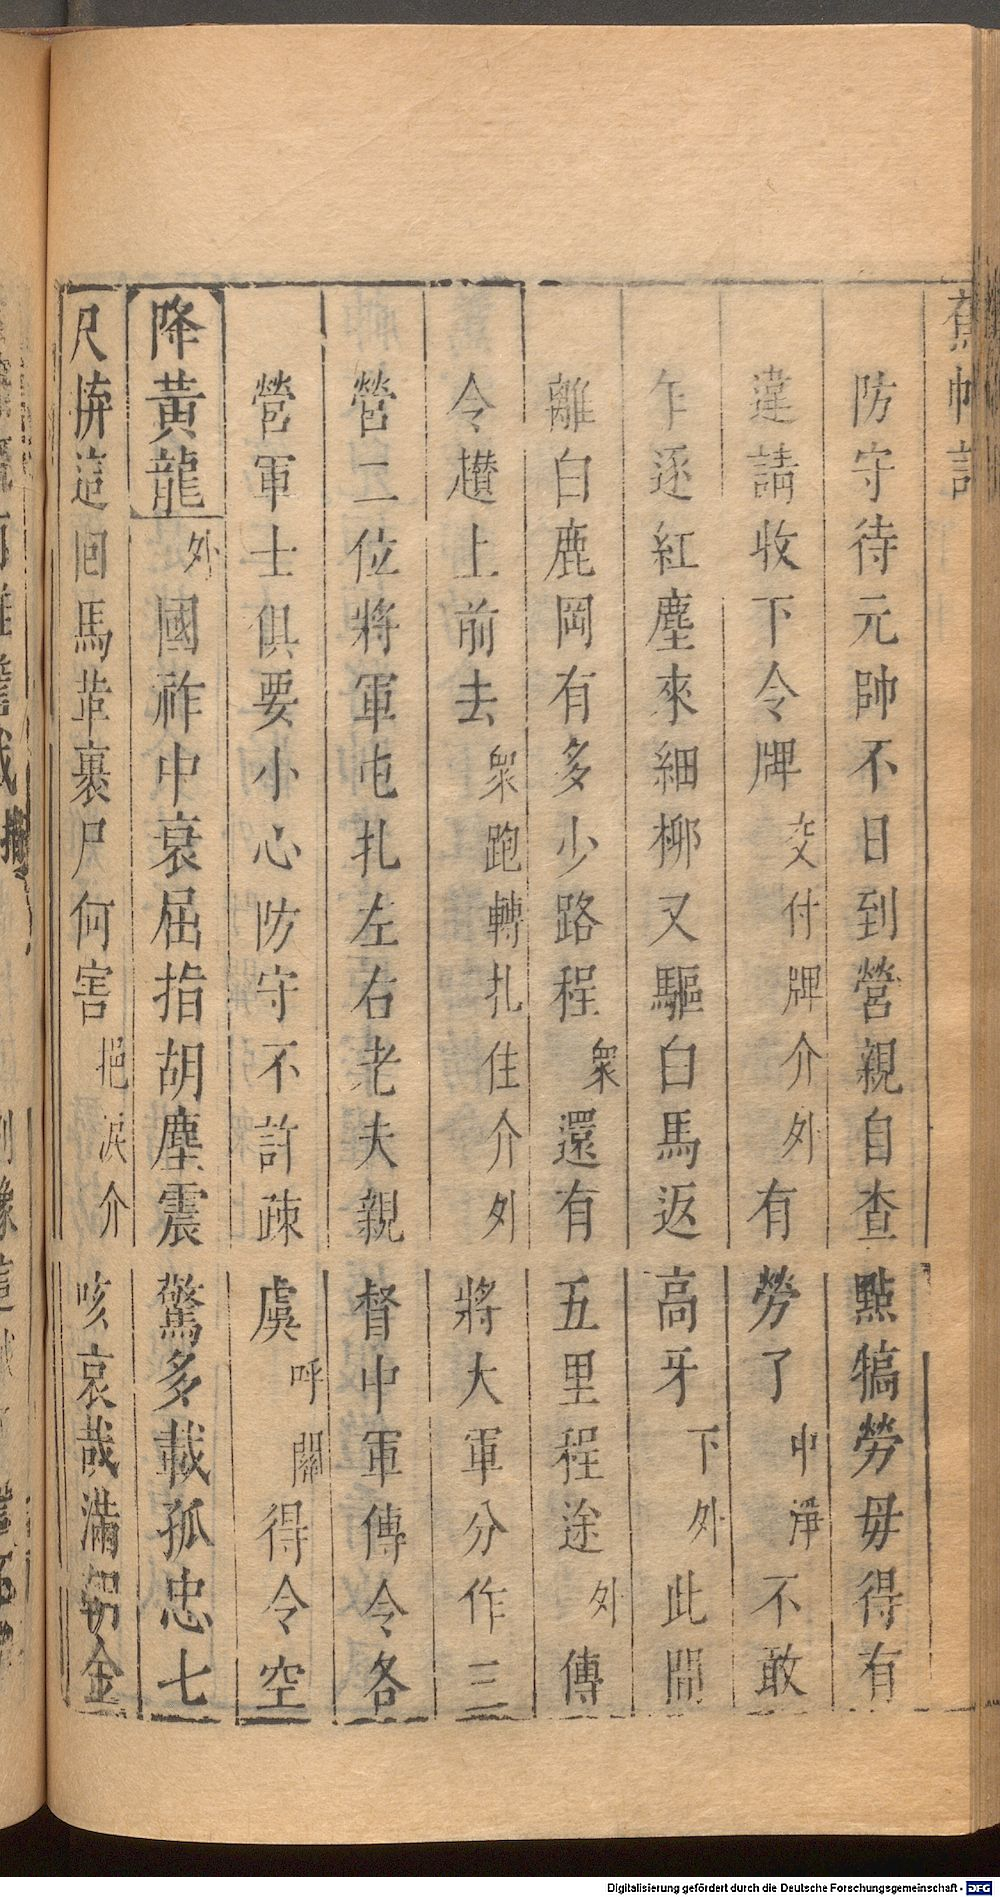 蕉帕記
防守待元帥不日到營親自查點犒勞毋得有
違請收下令牌交付牌介外有勞了中淨不敢
乍逐紅塵來細柳又驅白馬返高牙下外此間
離白鹿岡有多少路程衆還有五里程途外傳
令趲上前去衆跑轉扎住介外將大軍分作三
營二位將軍屯扎左右老夫親督中軍傳令各
營軍士俱要小心防守不許疎虞呼鬧得令空
降黃龍外國祚中衰屈指胡塵震驚多載孤忠七
尺拚這囘馬革裹尸何害挹淚介咳哀哉滿朝金
Digitalisierung gefördert durch die Deutsche Forschungsgemeinschaft - DFG